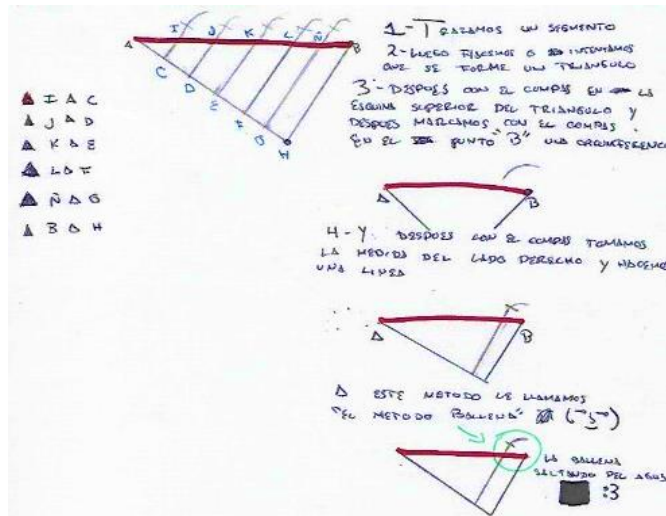 A I J K L Ñ B
C D E F G H
I A C
J A D
K A E
L A F
Ñ A G
B A H
1- TRAZAMOS UN SEGMENTO
2- LUEGO HACEMOS O INTENTAMOS
QUE SE FORME UN TRIANGULO
3- DESPUES CON EL COMPAS EN LA
ESQUINA SUPERIOR DEL TRIANGULO Y
DESPUES MARCAMOS CON EL COMPAS
EN EL PUNTO "B" UNA CIRCUNFERENCIA
A B
4- Y DESPUES CON EL COMPAS TOMAMOS
LA MEDIDA DEL LADO DERECHO Y HACEMOS
UNA LINEA
A B
A ESTE METODO LE LLAMAMOS
"EL METODO BALLENA"
LA BALLENA
SALTANDO DEL AGUA
:3